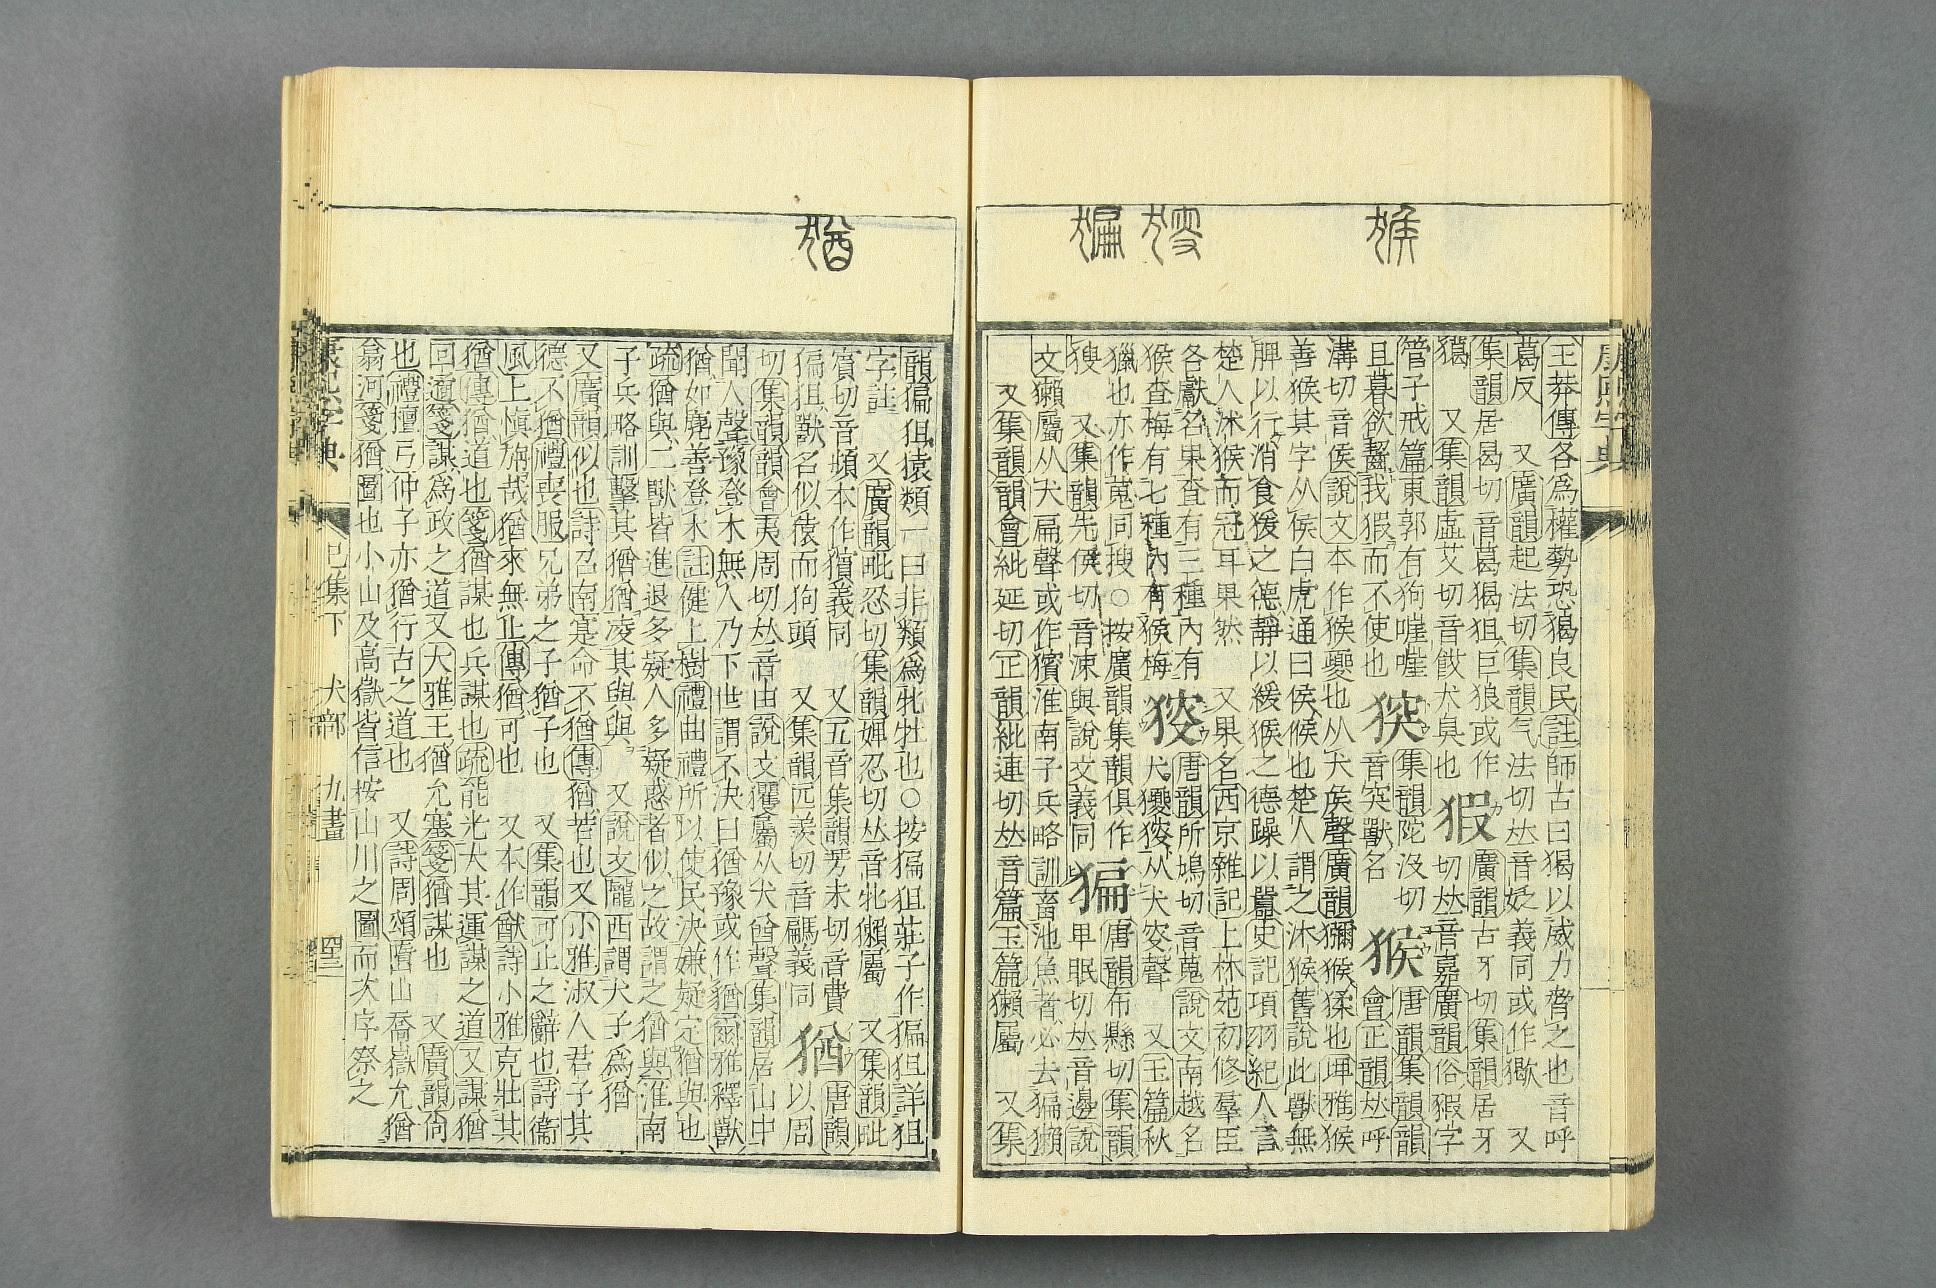 猴
㺅
猵
王莽傳各爲權勢恐猲良民註師古曰猲以威力脅之也音呼
葛反 又廣韻起法切集韻气法切𠀤音㛍義同或作獥 又
集韻居曷切音葛猲狙巨狼或作
猲 又集韻虛艾切音餀犬臭也
猳
廣韻古牙切集韻居牙
切𠀤音嘉廣韻俗猳字
管子戒篇東郭有狗嘊嘊
且暮欲齧我猳而不使也
㹸
集韻陀沒切
音突獸名
猴
唐韻集韻韻
會正韻𠀤呼
溝切音侯說文本作猴夒也从犬矦聲廣韻獼猴猱也坤雅猴
善候其字从侯白虎通曰侯候也楚人謂之沐猴舊說此獸無
脾以行消食猨之德靜以緩猴之德躁以囂史記項羽紀人言
楚人沐猴而冠耳果然 又果名西京雜記上林苑初修羣臣
各獻名果查有三種內有
猴查梅有七種內有猴梅
㺅
唐韻所鳩切音蒐說文南越名
犬獿㺅从犬㕟聲 又玉篇秋
獵也亦作蒐同搜○按廣韻集韻俱作
獀 又集韻先侯切音涑與說文義同
猵
唐韻布縣切集韻
甲眠切𠀤音邊說
文獺屬从犬扁聲或作獱淮南子兵略訓畜池魚者必去猵獺
又集韻韻會紕延切正韻紕連切𠀤音篇玉篇獺屬 又集
康熙字典
猶
韻猵狙猿類一曰非類爲牝牡也○按猵狙莊子作猵狙詳狙
字註 又廣韻毗忍切集韻婢忍切𠀤音牝獺屬 又集韻毗
賓切音頻本作獱義同 又五音集韻芳未切音費
猵狙獸名似猿而狗頭 又集韻匹羨切音騗義同
猶
唐韻
以周
切集韻韻會夷周切𠀤音由說文玃屬从犬酋聲集韻居山中
聞人聲豫登木無人乃下世謂不決曰猶豫或作猶爾雅釋獸
猶如麂善登木註健上樹禮曲禮所以使民決嫌疑定猶與也
疏猶與二獸皆進退多疑人多疑惑者似之故謂之猶與淮南
子兵略訓擊其猶猶凌其與與 又說文隴西謂犬子爲猶
又廣韻似也詩召南寔命不猶傳猶若也又小雅淑人君子其
德不猶禮喪服兄弟之子猶子也 又集韻可止之辭也詩衞
風上愼旃哉猶來無止傳猶可也 又本作猷詩小雅克壯其
猶傳猶道也箋猶謀也兵謀也疏能光大其運謀之道又謀猶
回遹箋謀爲政之道又大雅王猶允塞箋猶謀也 又廣韻尙
也禮檀弓仲子亦猶行古之道也 又詩周頌嶞山喬嶽允猶
翕河箋猶圖也小山及高嶽皆信按山川之圖而次序祭之
康熙字典
巳集下 犬部 九畫